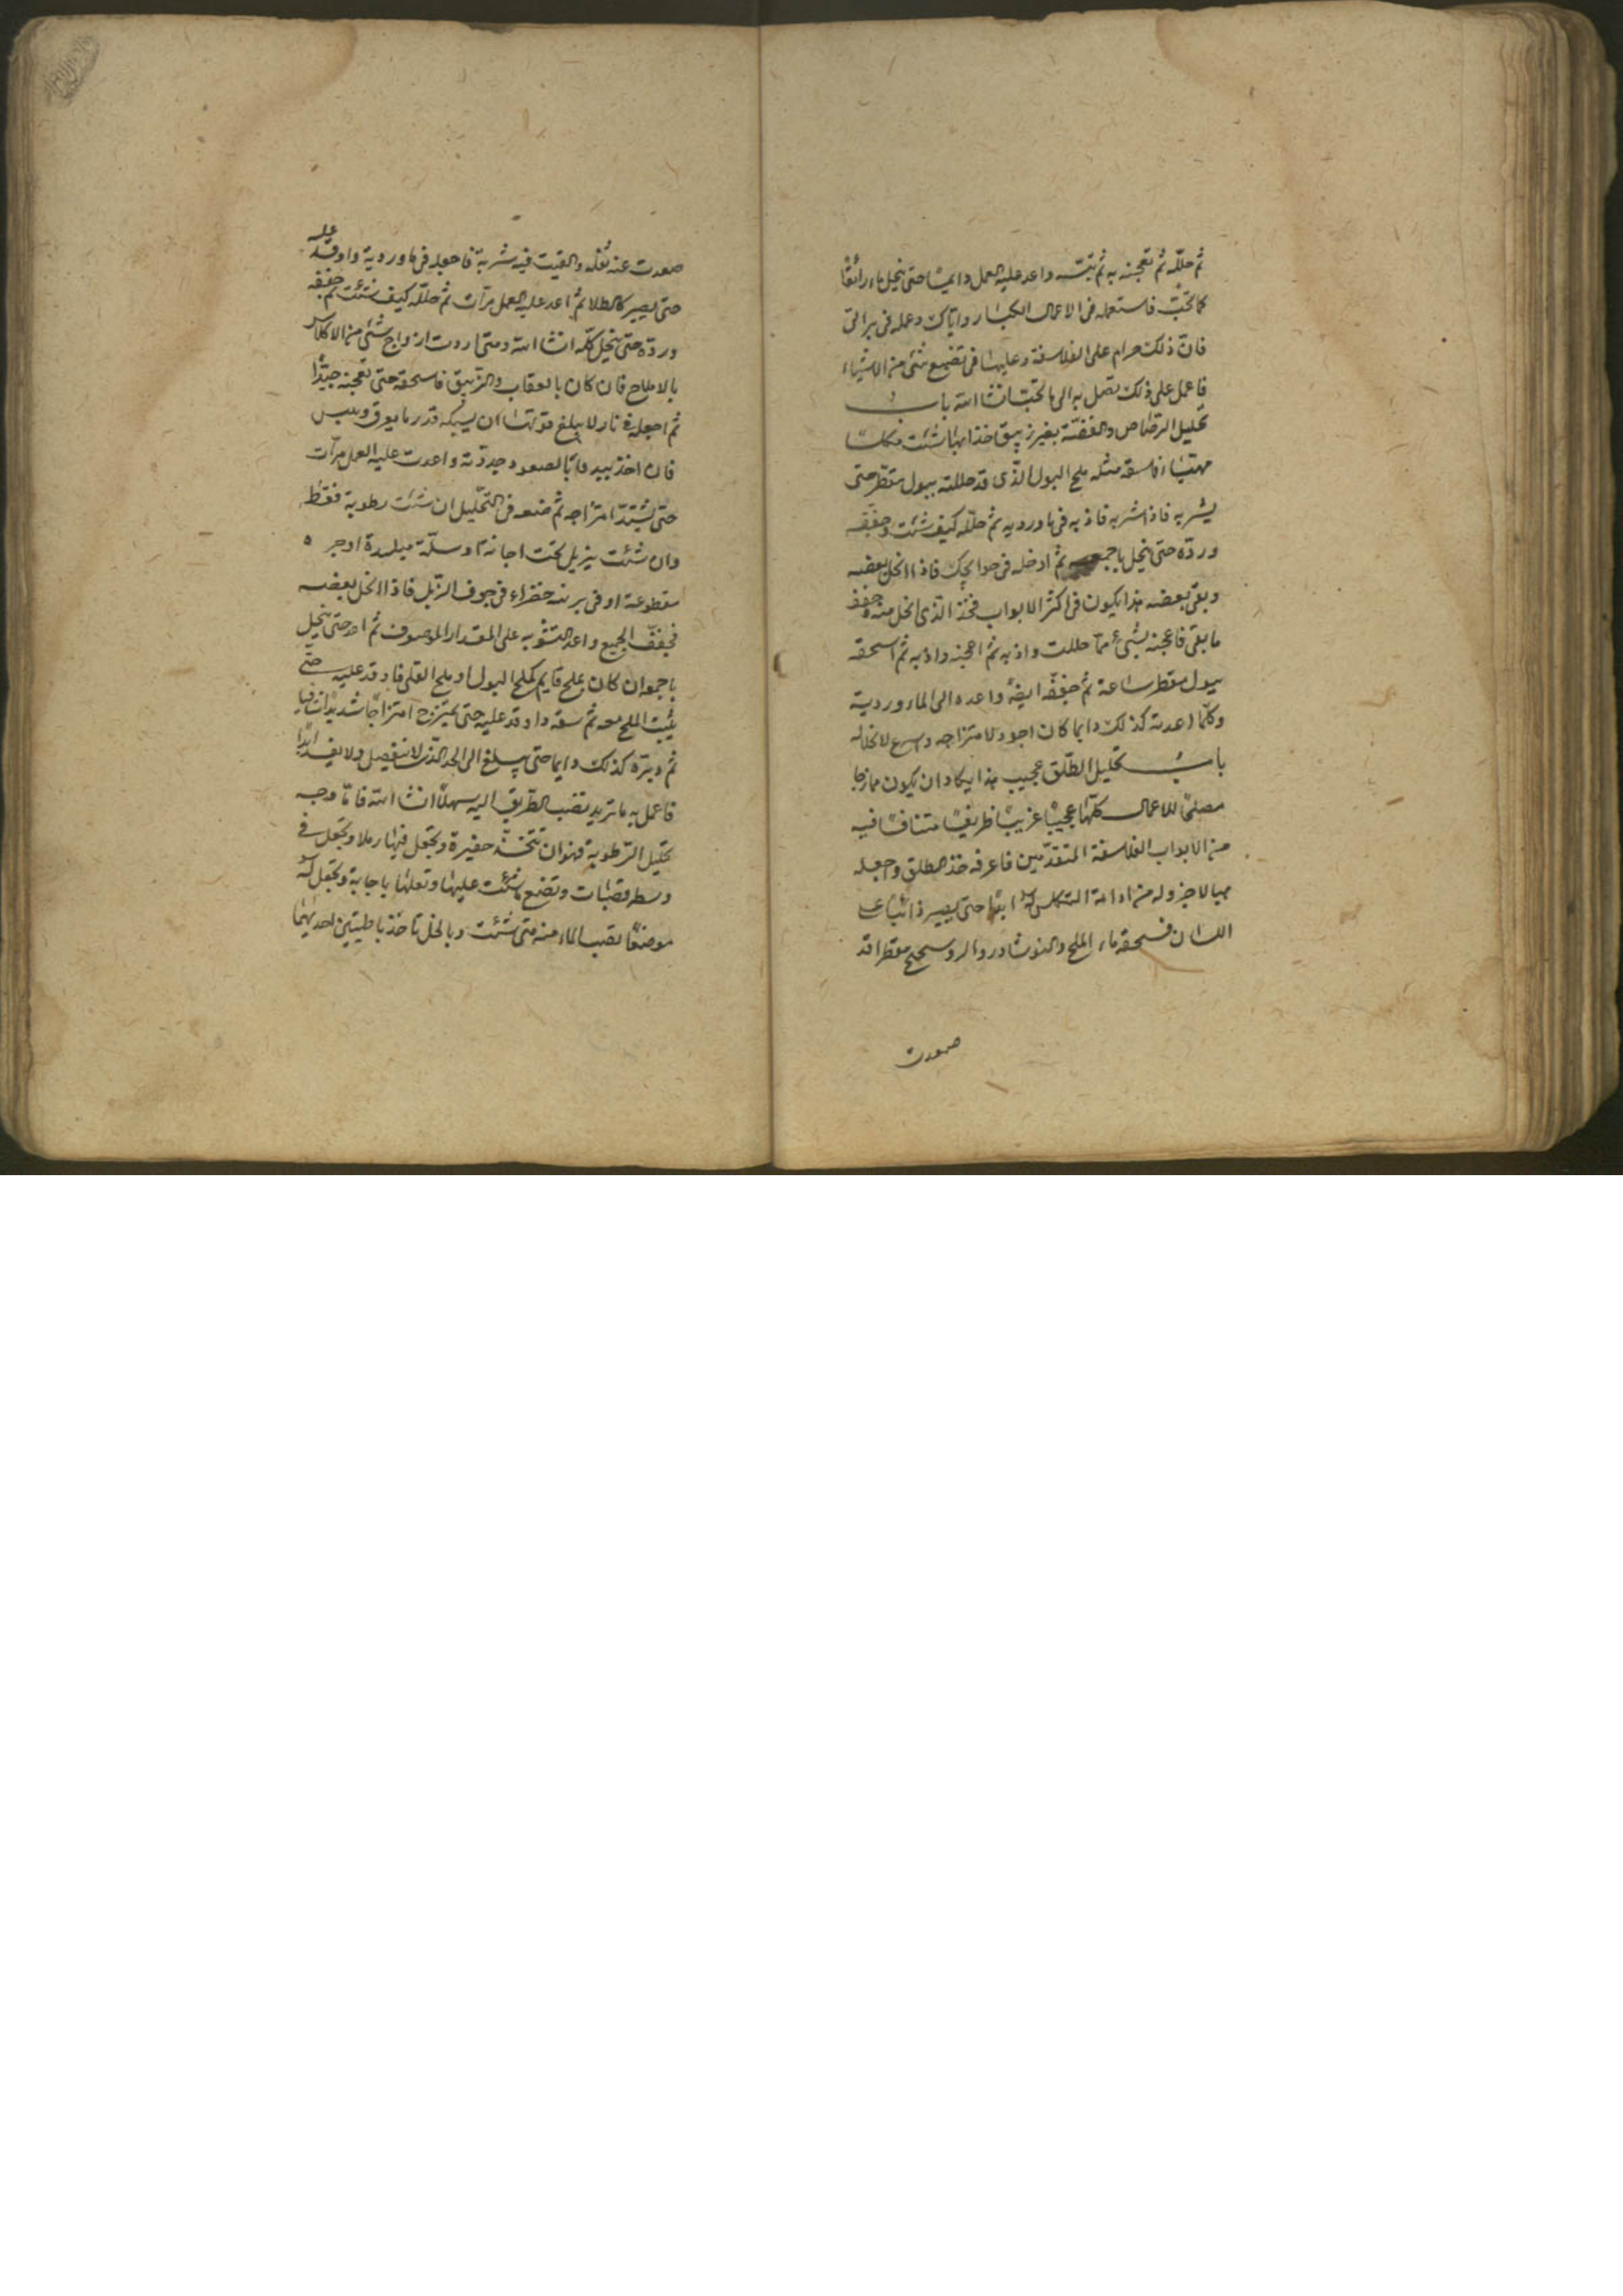 ثم حلّله ثم تعجنه به ثم تبتّه واعد عليه العمل دايمًا حتى ينحل ماء رائقًا
كما تحبّ فاستعمله فى الاعمال الكبار واياك وعمله فى برانى
فانّ ذلك حرام على الفلاسفة وعليها فى تضييع شئ من الاشياء
فاعمل على ذلك تصل به الى ما تحبّ انشا الله باب
تحليل الرصّاص والفضّة بغير زيبق خذ ايها شئت مكلسًا
مهبّىًا فاسقه مثله ملح البول الذّى قد حللته ببول مقطّر حتى
يشربه فاذا شربه فاذبه فى ماورديه ثم حلّله كيف شئت وجفّفه
وردّه حتى ينحل باجمعه ثم ادخله فى حوايجك فاذا انحل بعضه
وبقى بعضه هذا يكون فى اكثر الابواب فخذ الذى انحل منه وجفف
ما بقى فاعجنه بشئ ممّا حللت واذبه ثم اعجنه واذبه ثم اسحقه
ببول مقطر ساعة ثم جفّفه ايضًا واعده الى الماوردية
وكلّما اعدته كذلك دايما كان اجود لامتزاجه واسرع لانحلاله
باب تحليل الطّلق عجيب هذا يكاد ان يكون ممازجا
مصلحًا للاعمال كلّها عجيبًا غريبًا ظريفًا متنافسًا فيه
من الابواب الفلاسفة المتقدّمين فاعرفه خذ الطلق واجعله
مهيا لاجزوله من ادامة التكليس ابدًا حتى يصير ذائبًا على
اللسان فسحقه ماء الملح والنوشادر والروسحتج مقطرا قد
صعدت
صعدت عنه ثفله والقيت فيه شربة فاجعله فى ماوردية واوقد عليه
حتى يصير كالطلا ثم اعد عليه العمل مرّات ثم حلّله كيف شئت ثم جفّفه
وردّه حتى ينحل كلّه انشا الله ومتى اردت ازواج شئ من الاكلاس
بالاملاح فان كان بالعقاب والزّيبق فاسحقه حتى تعجنه جيّدًا
ثم اجعله فى نار لا يبلغ قوتها ان يسبكه قدر ما يعرق ويبس
فان اخذ بيد فى الصعود جددّته واعدت عليه العمل مرّات
حتى يشتدّ امتزاجه ثم ضعه فى التّحليل ان شئت رطوبة فقط
وان شئت بزبل تحت اجانة او سلّة مبلدة او جره
مقطوعة او فى برنية خضراء فى جوف الزّبل فاذا انحل بعضه
فجفّف الجميع واعد التشويه على المقدار الموصوف ثم اعد حتى ينحل
باجمعه ان كان بملح قايم كملح البول او ملح القلى فاوقد عليه حتى
يثبت الملح معه ثم سقه واوقد عليه حتى يمتزج امتزاجًا شديدًا شافيا
ثم دبّره كذلك دايما حتى يبلغ الى الحد الذى لا ينفصل ولا يفسد ابدًا
فاعمل به ما تريد تصب الطّريق اليه سهلًا انشا الله فامّا وجه
تحليل الرّطوبة فهو ان تتخذ حفيرة وتجعل فيها رملا وتجعل فى
وسطه قصبات وتضع ما شئت عليها وتعلها باجانة وتجعل له
موضعًا تصب الماء منه متى شئت وبالخل تاخذ باطيتين احديهما